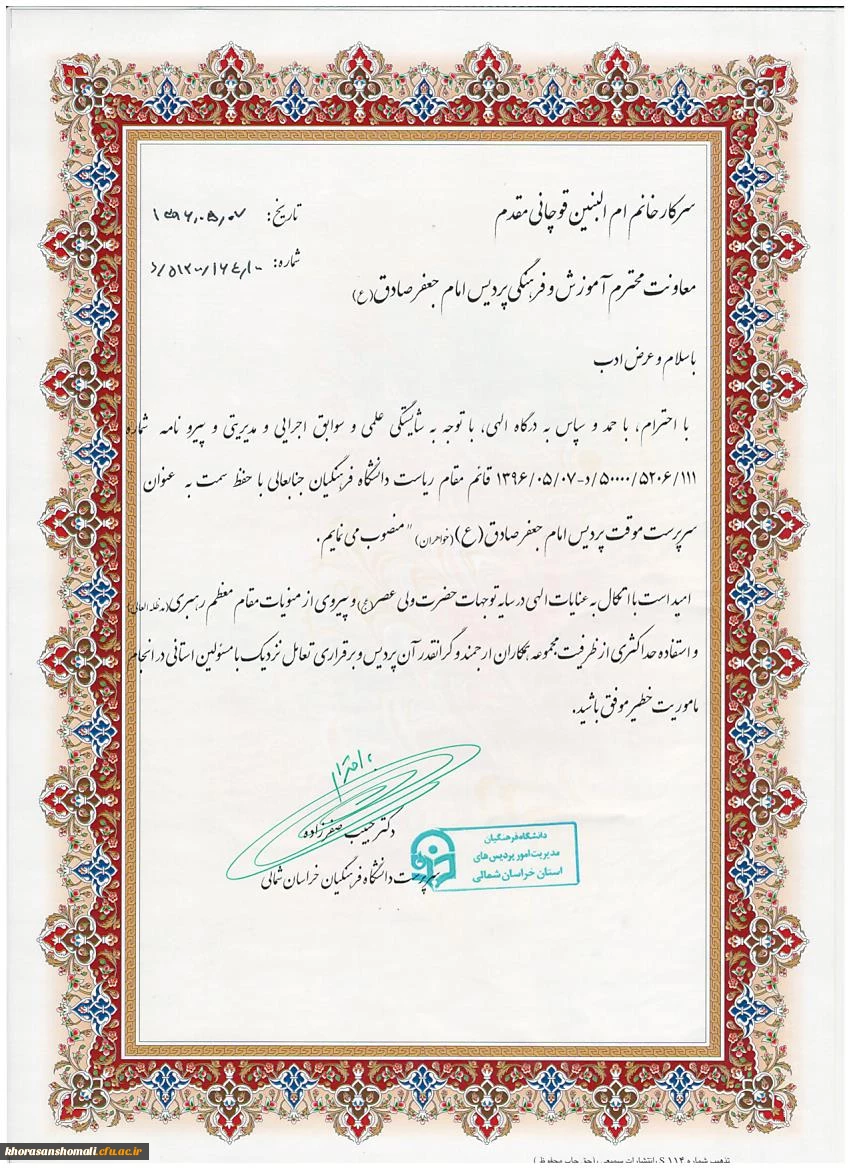 سرکار خانم ام البنین قوچانی مقدم
تاریخ: ۱۳۹۶،۰۵،۰۷
معاونت محترم آموزش و فرهنگی پردیس امام جعفر صادق (ع)
شماره: ۵۱۲۰۰/۱۶۴/۱۰/د
با سلام و عرض ادب
با احترام، با حمد و سپاس به درگاه الهی، با توجه به شایستگی علمی و سوابق اجرایی و مدیریتی و پیرو نامه شماره
۵۰۰۰۰/۵۲۰۶/۱۱۱/د-۱۳۹۶/۰۵/۰۷ قائم مقام ریاست دانشگاه فرهنگیان جنابعالی با حفظ سمت به عنوان "
سرپرست موقت پردیس امام جعفر صادق (ع) (خواهران) " منصوب می نمایم.
امید است با اتکال به عنایات الهی در سایه توجهات حضرت ولی عصر (عج) و پیروی از منویات مقام معظم رهبری (مدظله العالی)
و استفاده حداکثری از ظرفیت مجموعه همکاران ارجمند و گرانقدر آن پردیس و برقراری تعامل نزدیک با مسئولین استانی در انجام
ماموریت خطیر موفق باشید.
با احترام
دکتر حبیب صفرزاده
سرپرست دانشگاه فرهنگیان خراسان شمالی
دانشگاه فرهنگیان
مدیریت امور پردیس های
استان خراسان شمالی
تذهیب شماره S ۱۱۴ انتشارات (حق چاپ محفوظ)
khorasanshomali.cfu.ac.ir